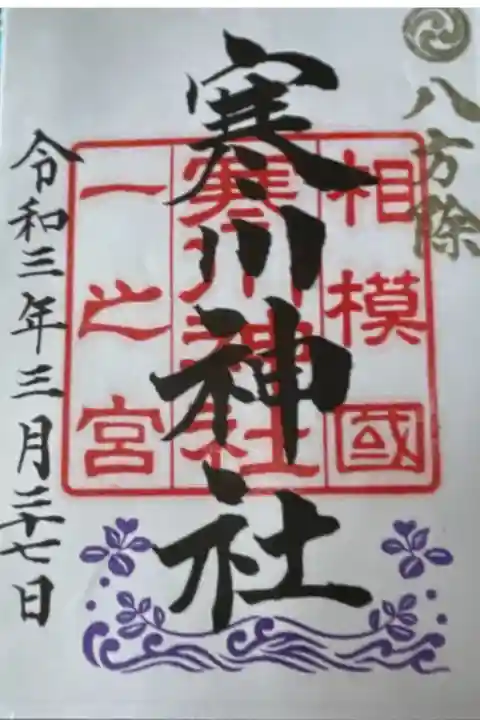 八方除
相模國
寒川神社
一之宮
寒川神社
令和三年三月二十七日